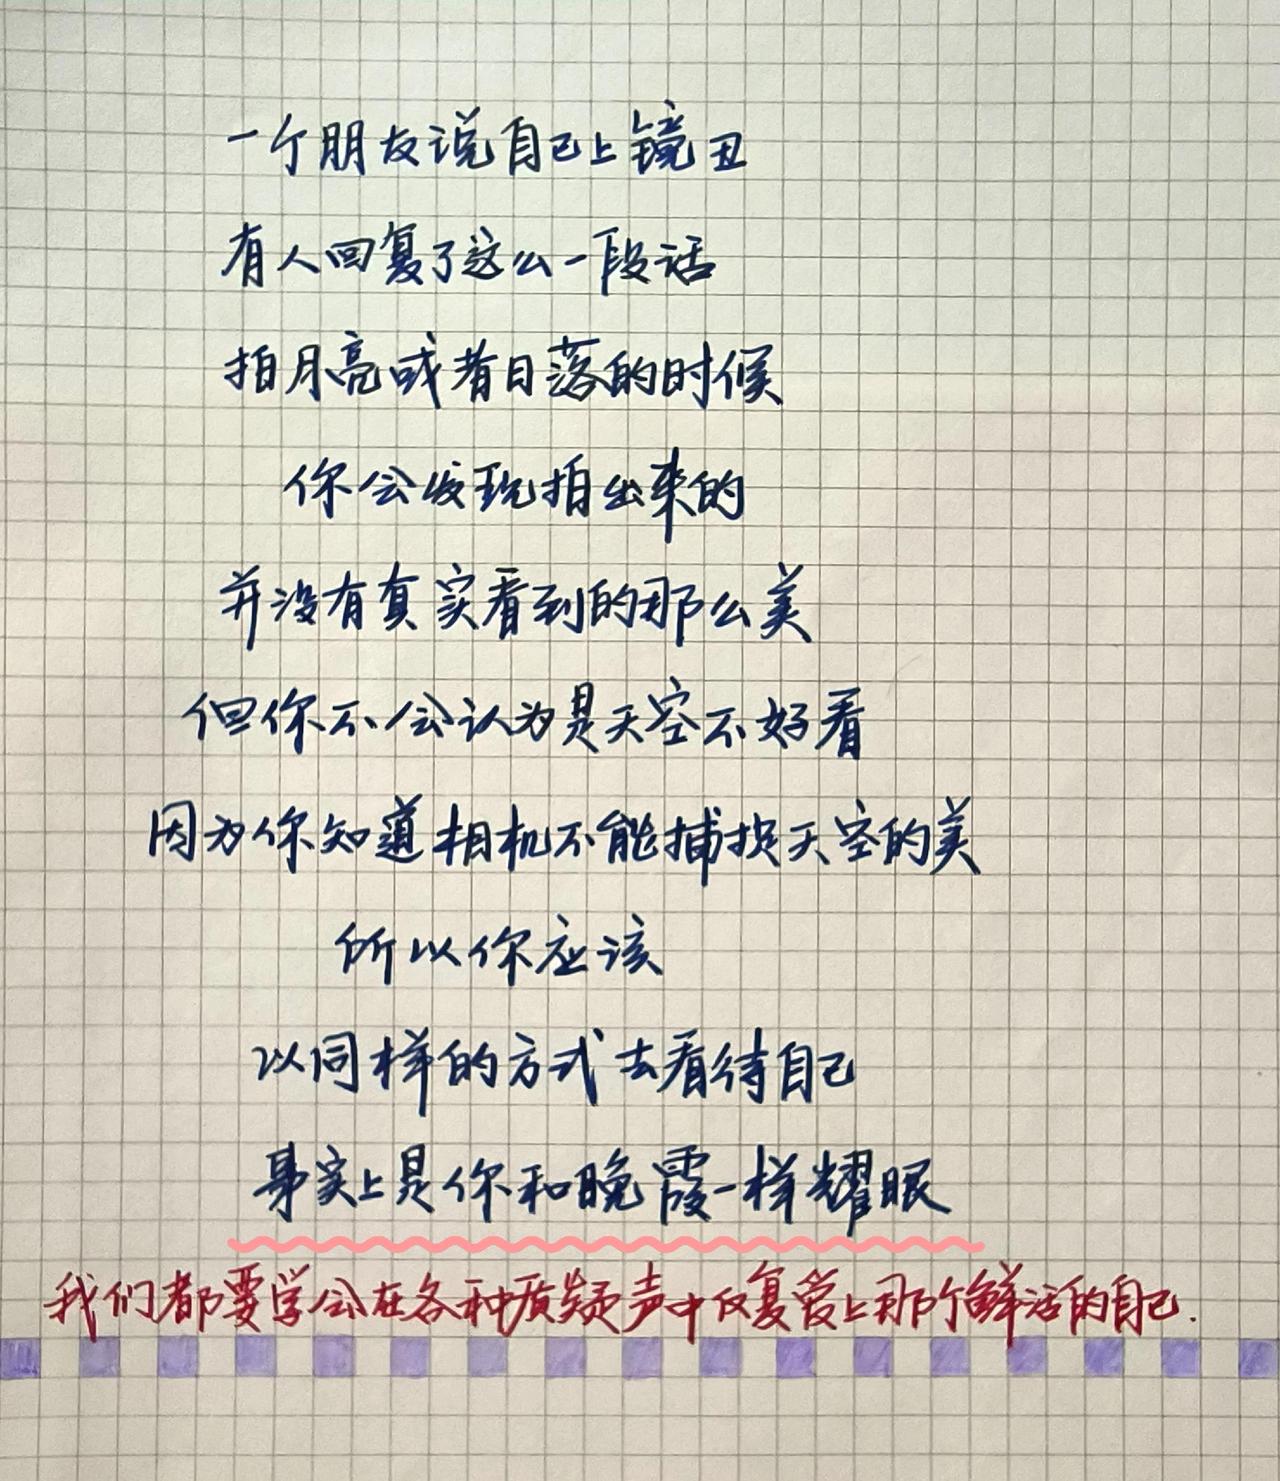 一个朋友说自己上镜丑
有人回复了这么一段话
拍月亮或者日落的时候
你会发现拍出来的
并没有真实看到的那么美
但你不会认为是天空不好看
因为你知道相机不能捕捉天空的美
所以你应该
以同样的方式去看待自己
事实上是你和晚霞一样耀眼
我们都要学会在各种质疑声中反复爱上那个鲜活的自己.